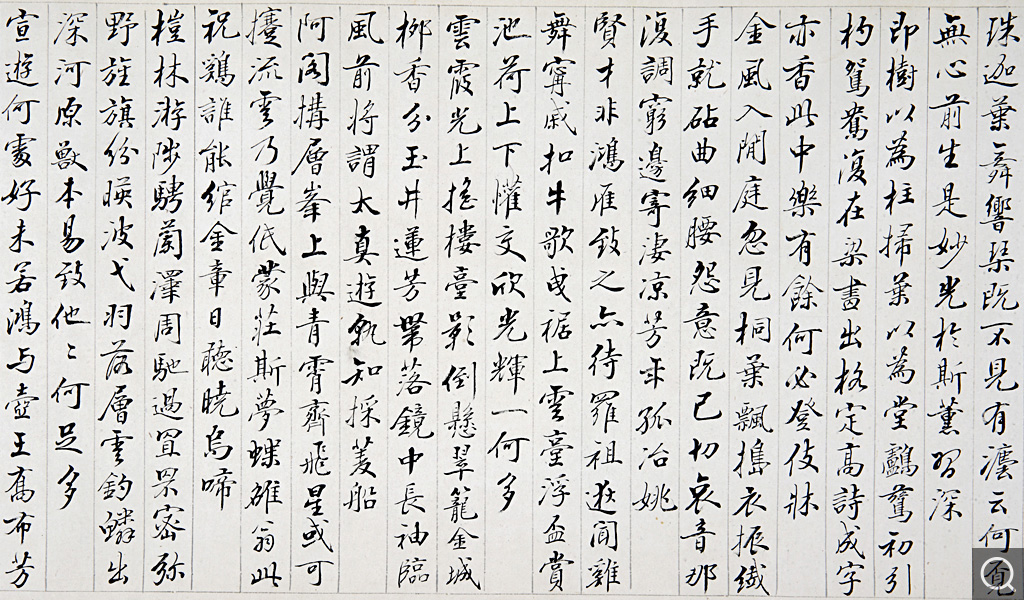 珠迦葉舞響琴既不見有瀍云何覓
無心前生是妙光於斯薰習深
即樹以為柱掃葉以為堂鸝鶯初引
杓鴛鴦復在梁書出格定高詩成字
亦香此中樂有餘何必登伎牀
金風入閒庭忽見桐葉飄搗衣振纖
手就砧曲細腰怨意既已切哀音那
復調窮邊寄淒涼芳年孤冶姚
賢才非鴻雁致之亦待羅祖逖聞雞
舞寧戚扣牛歌曳裾上雲臺浮盃賞
池荷上下懽交欣光輝一何多
雲霞光上搖樓臺影倒懸翠籠金城
柳香分玉井蓮芳舉落鏡中長袖臨
風前將謂太真遊孰知採菱船
阿閣搆層峯上與青霄齊飛星或可
攓流雲乃覺低蒙莊斯夢蝶雖翁此
祝鷄誰能綰金章日聽曉烏啼
榿林游陟騁蘭澤周馳過罝罘密弥
野旌旗份暎波弋羽落層雲釣鱗出
深河原獸本易致他々何足多
宣遊何處好未若鴻与壺王喬布芳